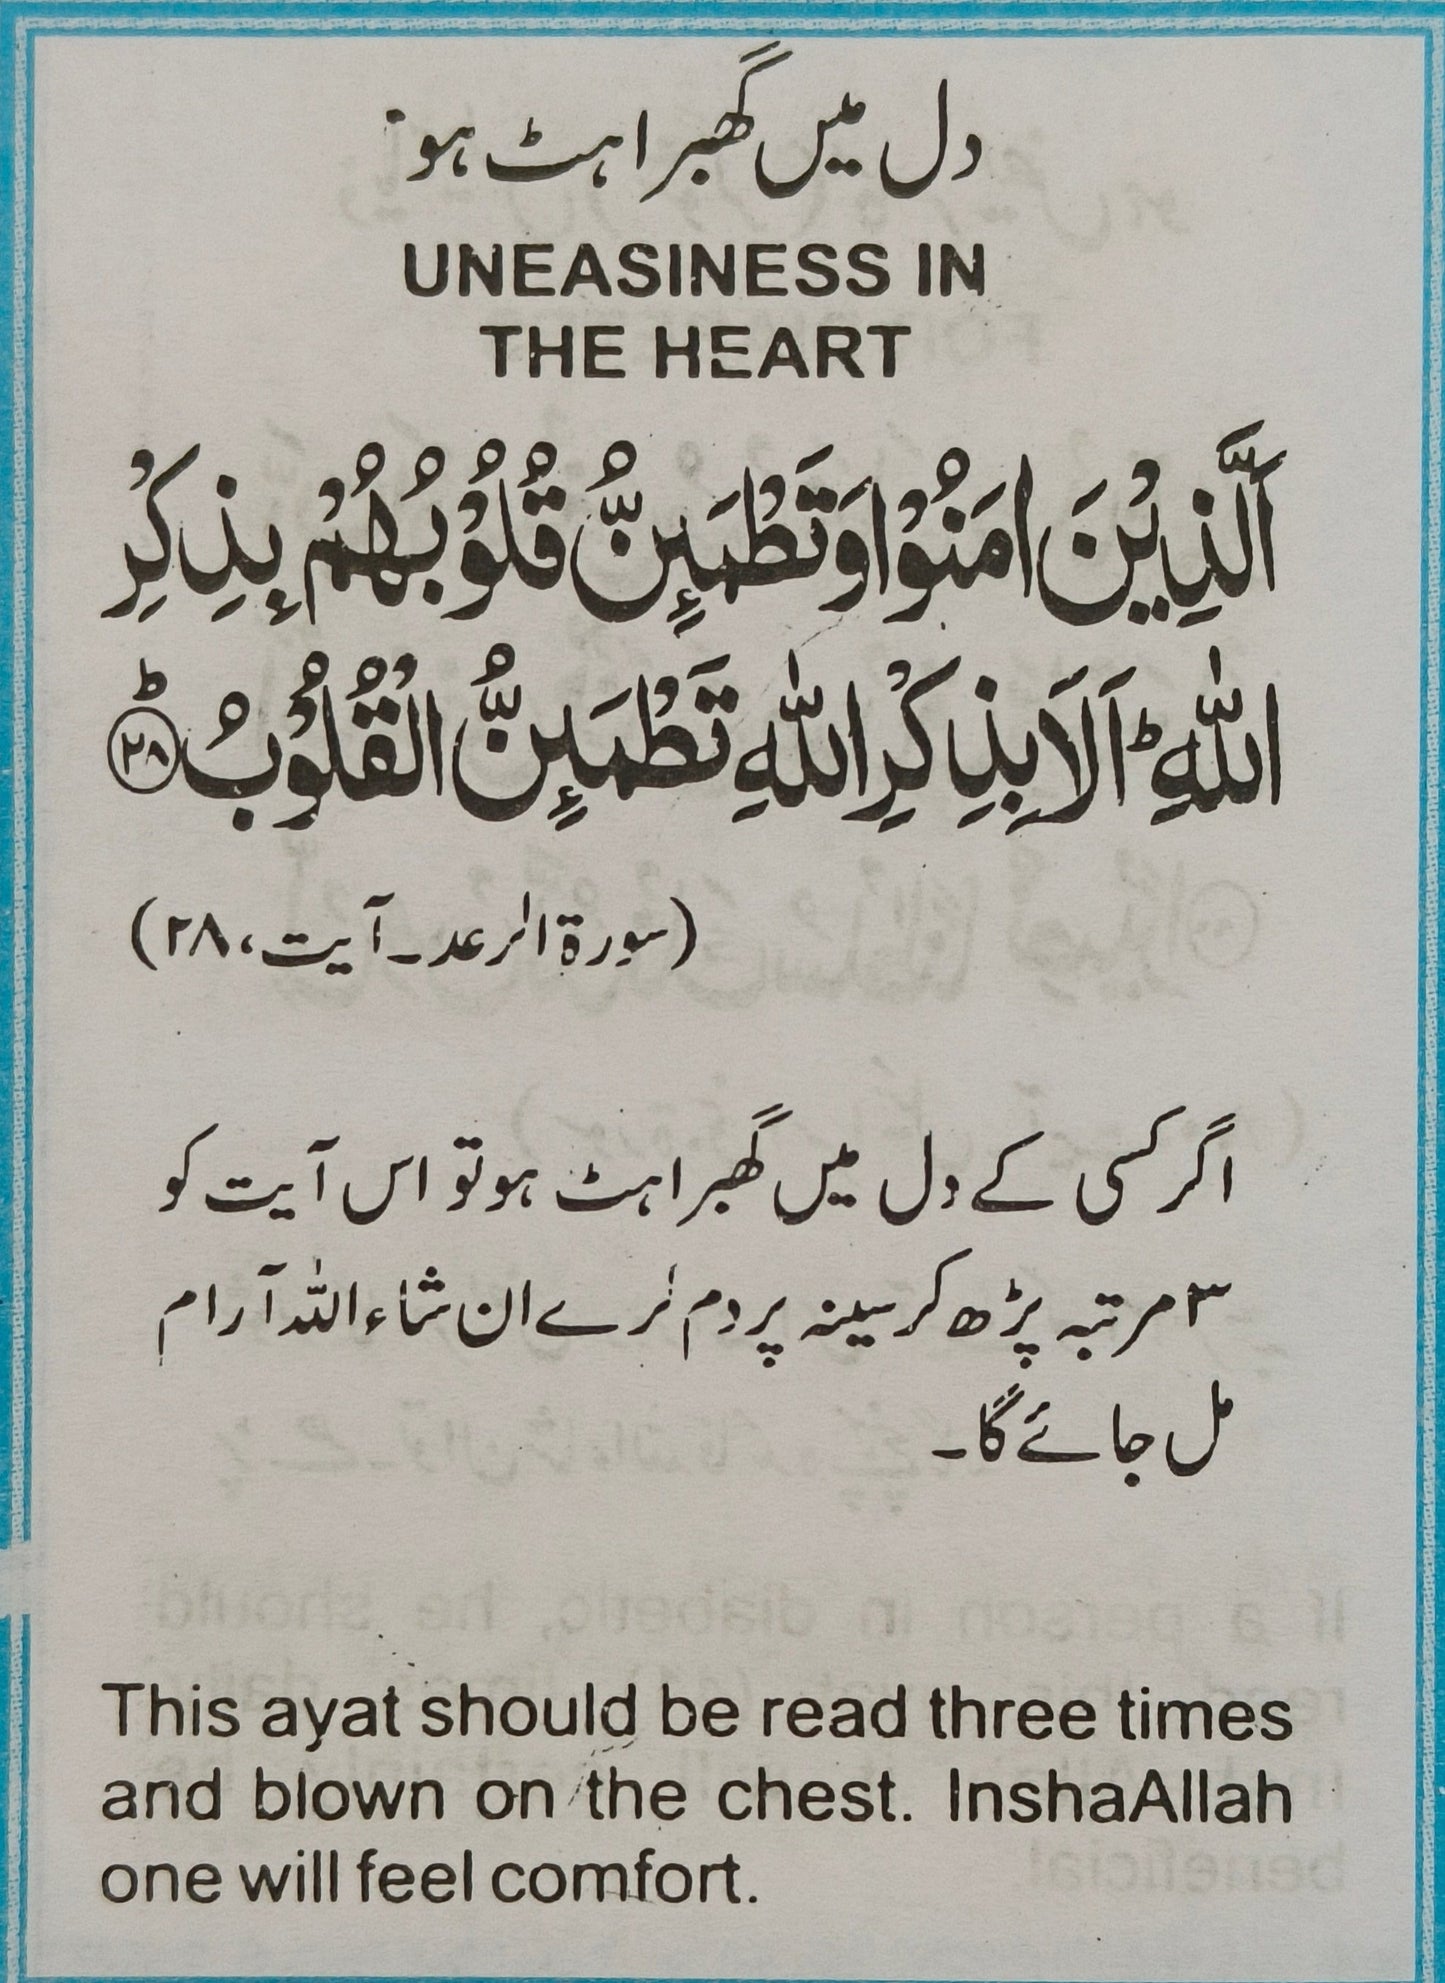 دل میں گھبراہٹ ہو
UNEASINESS IN
THE HEART
اَلَّذِيْنَ اٰمَنُوْا وَتَطْمَئِنُّ قُلُوْبُهُمْ بِذِكْرِ
اللّٰهِ ؕ اَلَا بِذِكْرِ اللّٰهِ تَطْمَئِنُّ الْقُلُوْبُ ؕ ۲۸
(سورة الرعد۔ آیت، ۲۸)
اگر کسی کے دل میں گھبراہٹ ہو تو اس آیت کو
۳ مرتبہ پڑھ کر سینہ پر دم کرے ان شاء اللہ آرام
مل جائے گا۔
This ayat should be read three times
and blown on the chest. InshaAllah
one will feel comfort.